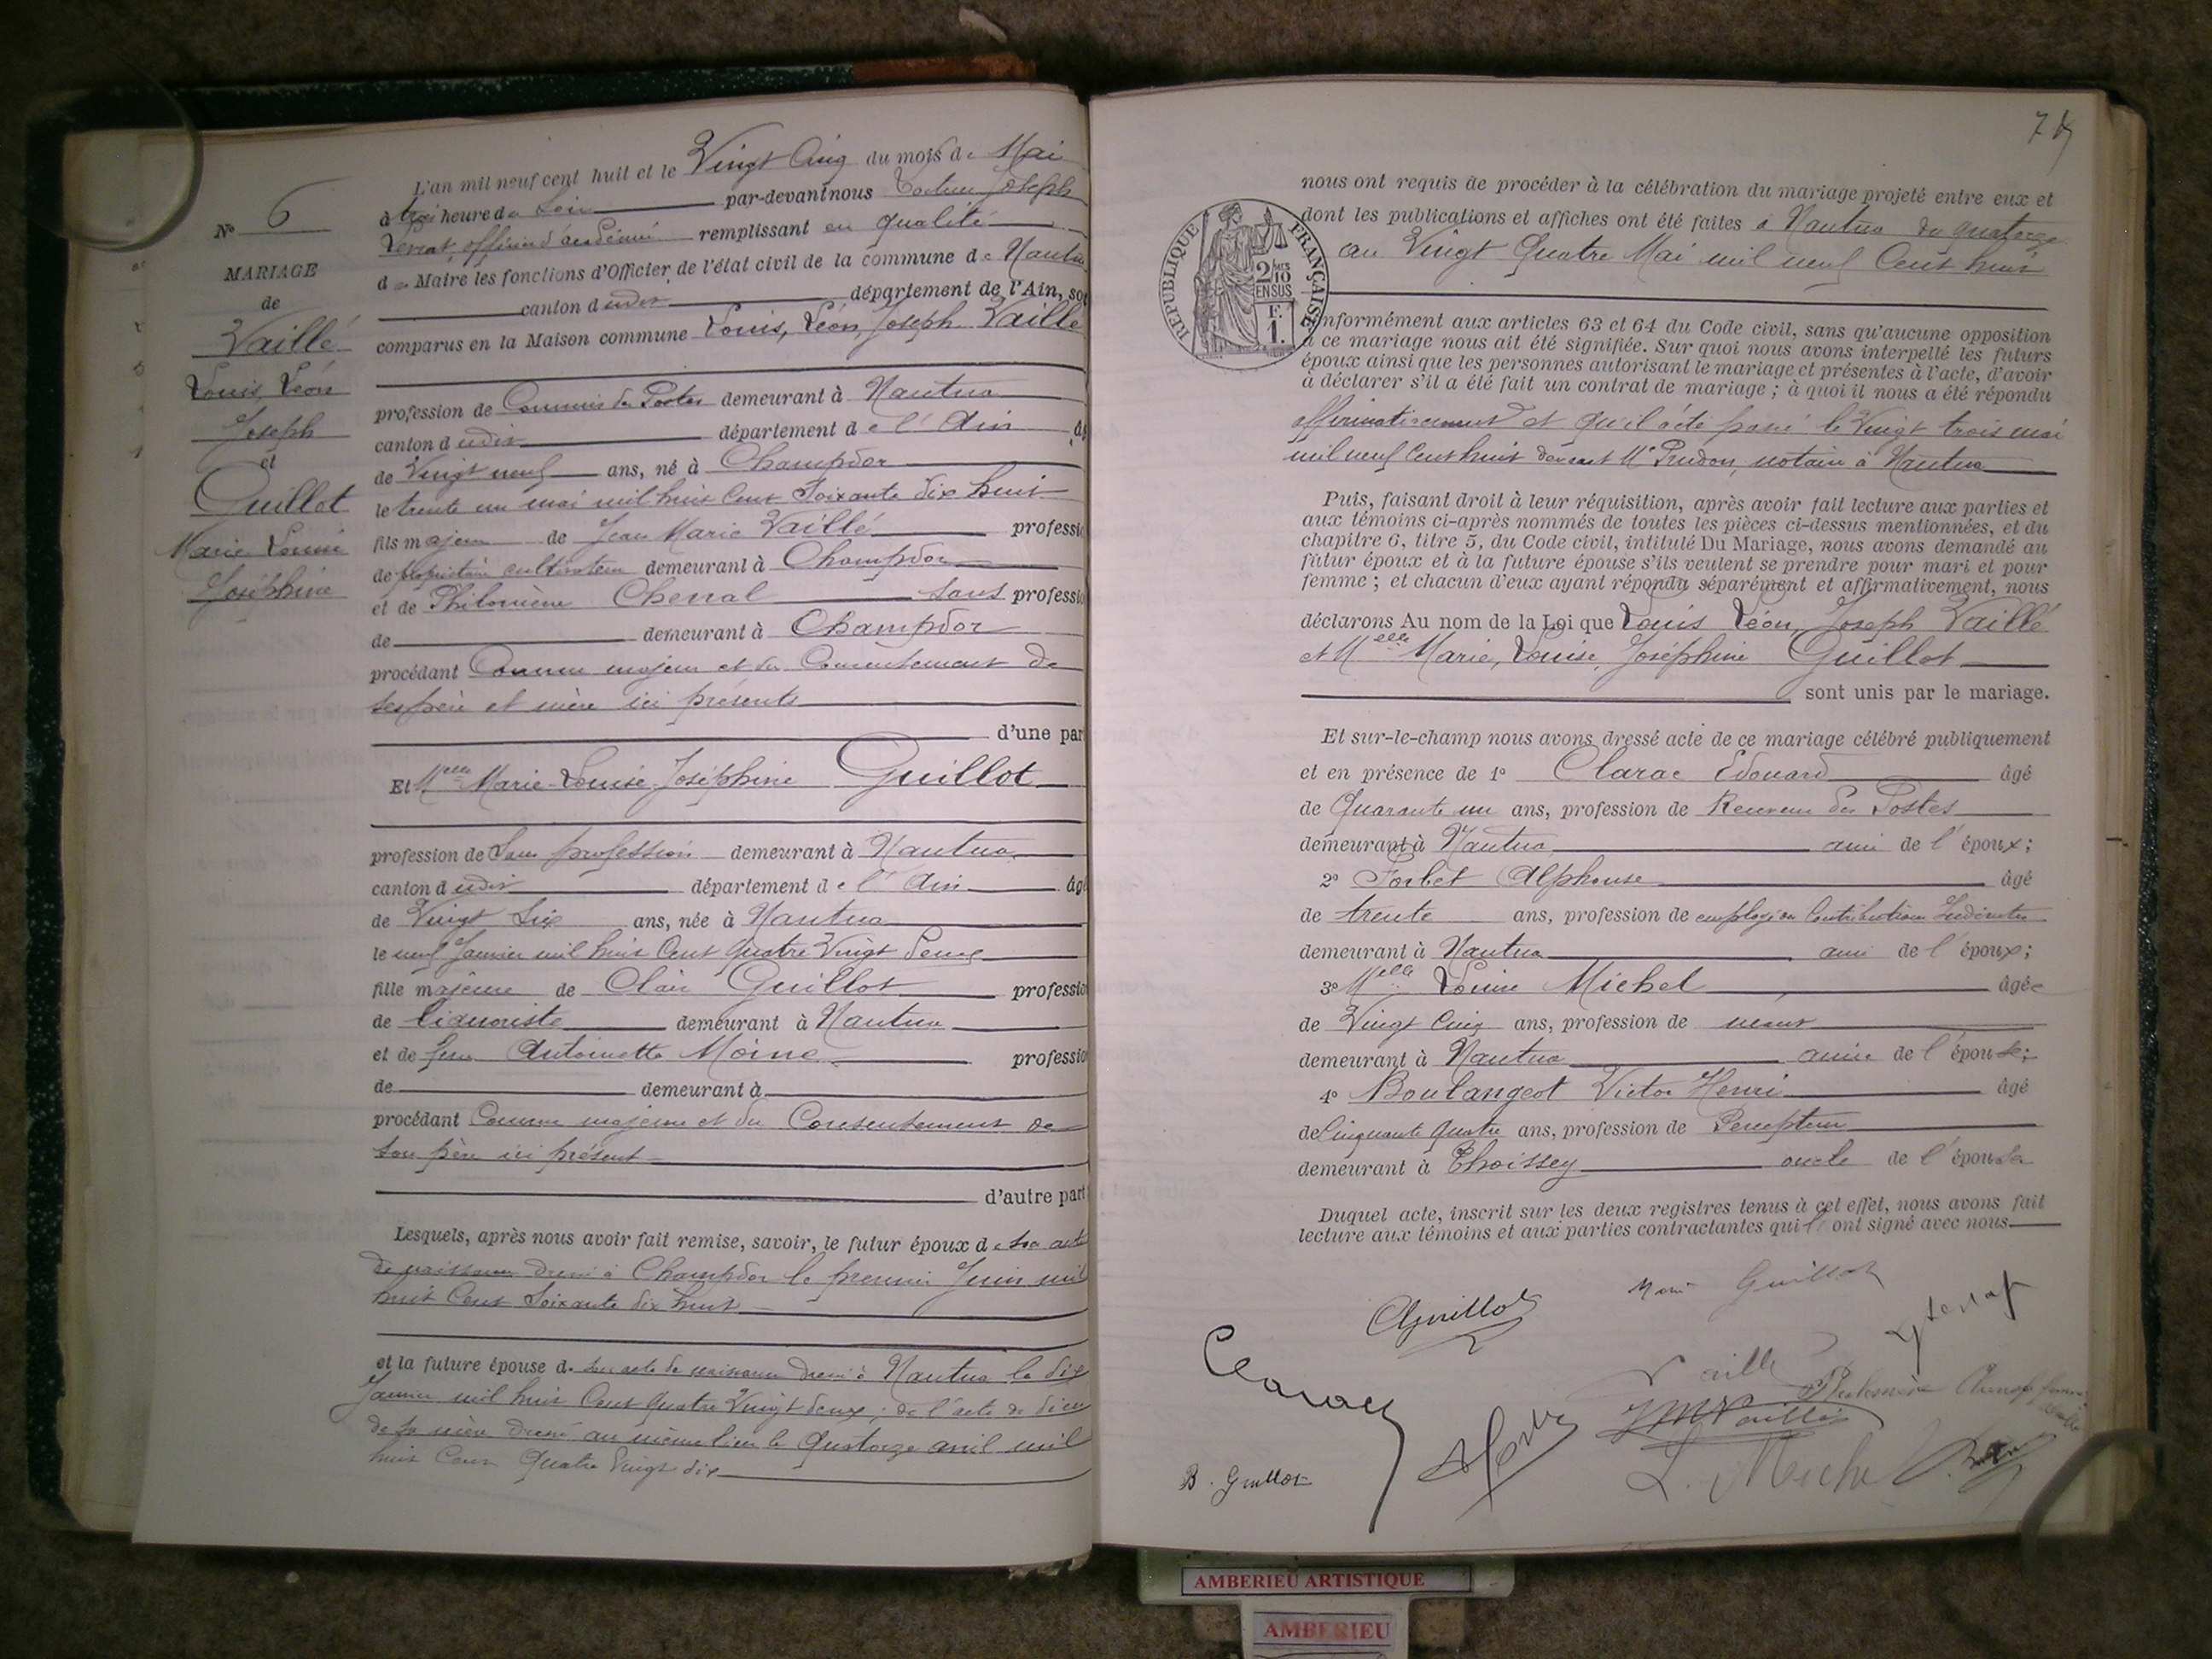 N° 6
MARIAGE
de
Vaillé
Louis, Léon
Joseph
et
Guillot
Marie Louise
Joséphine
L'an mil neuf cent huit et le Vingt Cinq du mois de Mai
à trois heure du Soir par-devant nous Docteur Joseph
officier d'académie remplissant en qualité
de Maire les fonctions d'Officier de l'état civil de la commune de Nantua
canton dudit département de l'Ain, so
comparus en la Maison commune Louis, Léon, Joseph Vaillé
profession de Commis des Postes demeurant à Nantua
canton dudit département de l'Ain âg
de Vingt neuf ans, né à Champdor
le trente un mai mil huit Cent Soixante dix huit
fils majeur de Jean Marie Vaillé professio
de propriétaire cultivateur demeurant à Champdor
et de Philomène Chenal sans professio
de demeurant à Champdor
procédant Comme majeur et du Consentement de
ses père et mère ici présents
d'une par
Et Melle Marie-Louise Joséphine Guillot
profession de Sans profession demeurant à Nantua
canton dudit département de l'Ain âgé
de Vingt Six ans, née à Nantua
le neuf Janvier mil huit Cent Quatre Vingt Deux
fille majeure de Clair Guillot professio
de liquoriste demeurant à Nantua
et de feue Antoinette Moine professio
de demeurant à
procédant Comme majeure et du Consentement de
son père ici présent
d'autre part
Lesquels, après nous avoir fait remise, savoir, le futur époux de son acte
de naissance dressé à Champdor le premier Juin mil
huit Cent Soixante dix huit
et la future épouse de son acte de naissance dressé à Nantua le dix
Janvier mil huit Cent Quatre Vingt deux ; de l'acte de décès
de sa mère dressé au même lieu le Quatorze avril mil
huit Cent Quatre Vingt dix
nous ont requis de procéder à la célébration du mariage projeté entre eux et
dont les publications et affiches ont été faites à Nantua du quatorze
au Vingt Quatre Mai mil neuf Cent huit
RÉPUBLIQUE FRANÇAISE
2/10
EN SUS
F.
1.
conformément aux articles 63 et 64 du Code civil, sans qu'aucune opposition
à ce mariage nous ait été signifiée. Sur quoi nous avons interpellé les futurs
époux ainsi que les personnes autorisant le mariage et présentes à l'acte, d'avoir
à déclarer s'il a été fait un contrat de mariage ; à quoi il nous a été répondu
affirmativement et qu'il a été passé le Vingt trois mai
mil neuf Cent huit devant Me Prudon, notaire à Nantua
Puis, faisant droit à leur réquisition, après avoir fait lecture aux parties et
aux témoins ci-après nommés de toutes les pièces ci-dessus mentionnées, et du
chapitre 6, titre 5, du Code civil, intitulé Du Mariage, nous avons demandé au
futur époux et à la future épouse s'ils veulent se prendre pour mari et pour
femme ; et chacun d'eux ayant répondu séparément et affirmativement, nous
déclarons Au nom de la Loi que Louis Léon, Joseph Vaillé
et Melle Marie, Louise, Joséphine Guillot
sont unis par le mariage.
Et sur-le-champ nous avons dressé acte de ce mariage célébré publiquement
et en présence de 1° Clarac Edouard âgé
de Quarante un ans, profession de Receveur des Postes
demeurant à Nantua ami de l'époux;
2° Forbet Alphonse âgé
de trente ans, profession de employé des Contributions Indirectes
demeurant à Nantua ami de l'époux;
3° Melle Louise Michel âgée
de Vingt Cinq ans, profession de néant
demeurant à Nantua amie de l'épouse;
4° Boulangeot Victor Henri âgé
de Cinquante Quatre ans, profession de Percepteur
demeurant à Thoissey oncle de l'épouse
Duquel acte, inscrit sur les deux registres tenus à cet effet, nous avons fait
lecture aux témoins et aux parties contractantes qui l'ont signé avec nous
Marie Guillot
CGuillot
Clarac
Vaillé
JM Vaillé
B. Guillot
L. Michel
AMBERIEU ARTISTIQUE
AMBERIEU